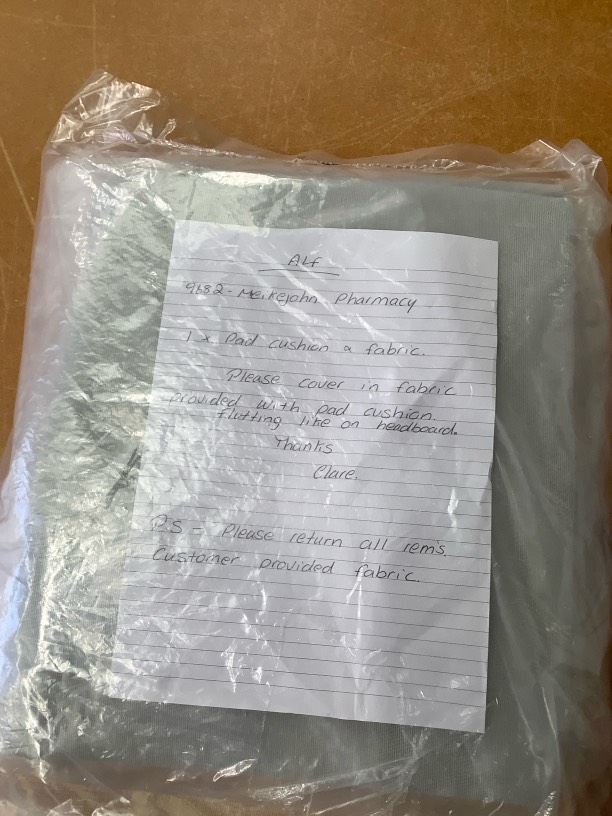 ALf
9682 - Meikejohn Pharmacy
1 x Pad cushion & fabric.
Please cover in fabric
provided with pad cushion.
flutting like on headboard.
Thanks
Clare.
P.S - Please return all rem's.
Customer provided fabric.